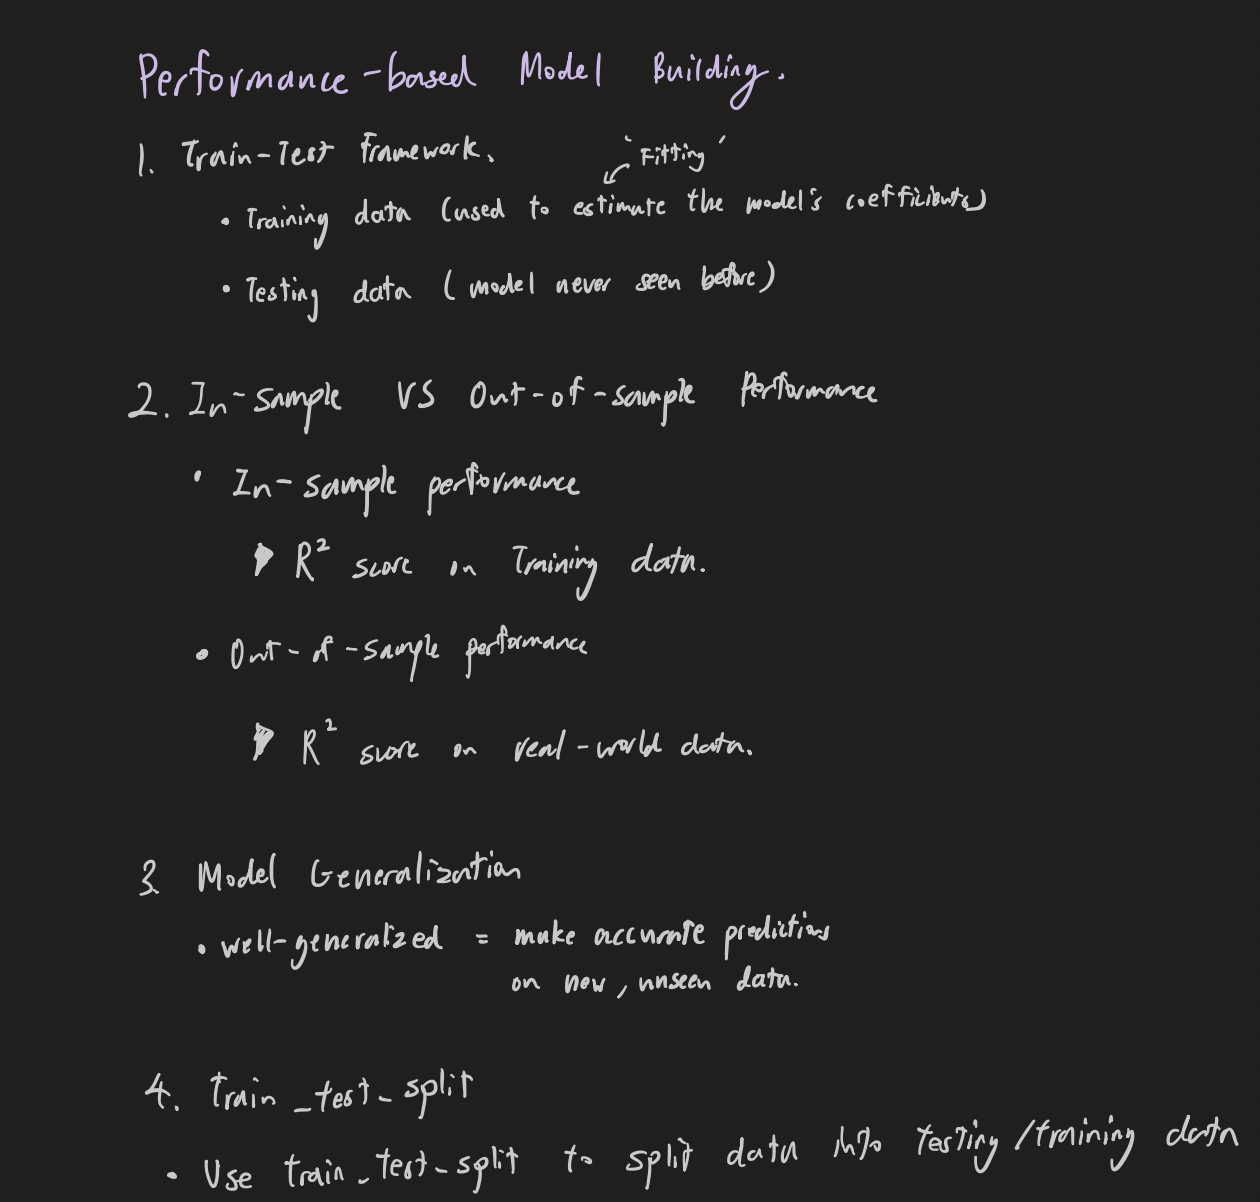 Performance-based Model Building.
1. Train-Test Framework.
'Fitting'
• Training data (used to estimate the model's coefficients)
• Testing data (model never seen before)
2. In-sample VS Out-of-sample Performance
• In-sample performance
R² score on Training data.
• Out-of-sample performance
R² score on real-world data.
3. Model Generalization
• well-generalized = make accurate predictions
on new, unseen data.
4. train_test_split
• Use train_test_split to split data into testing/training data